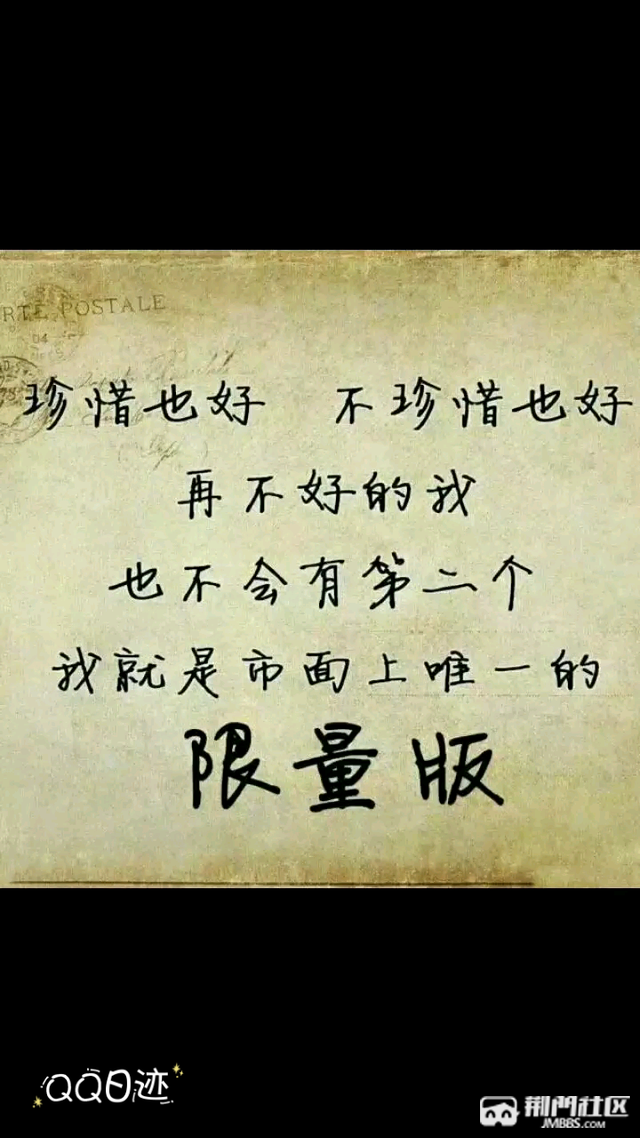 RTE POSTALE
珍惜也好 不珍惜也好
再不好的我
也不会有第二个
我就是市面上唯一的
限量版
QQ日迹
荆門社区
JMBBS.COM